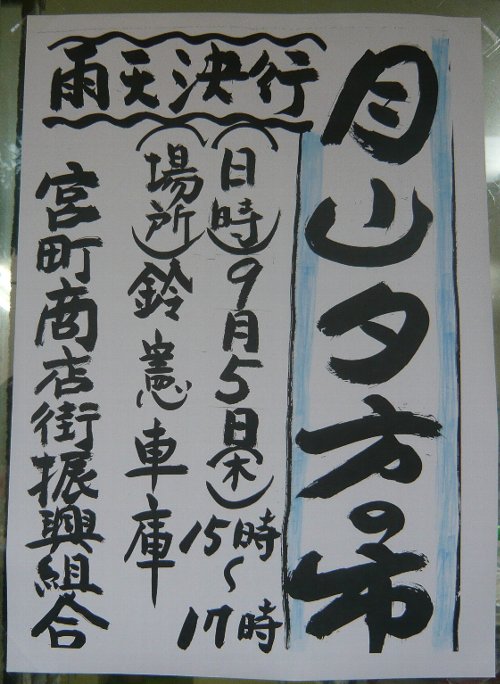 月山夕方の市
雨天決行
(日時)9月5日(木)15時~17時
(場所)鈴憲車庫
宮町商店街振興組合